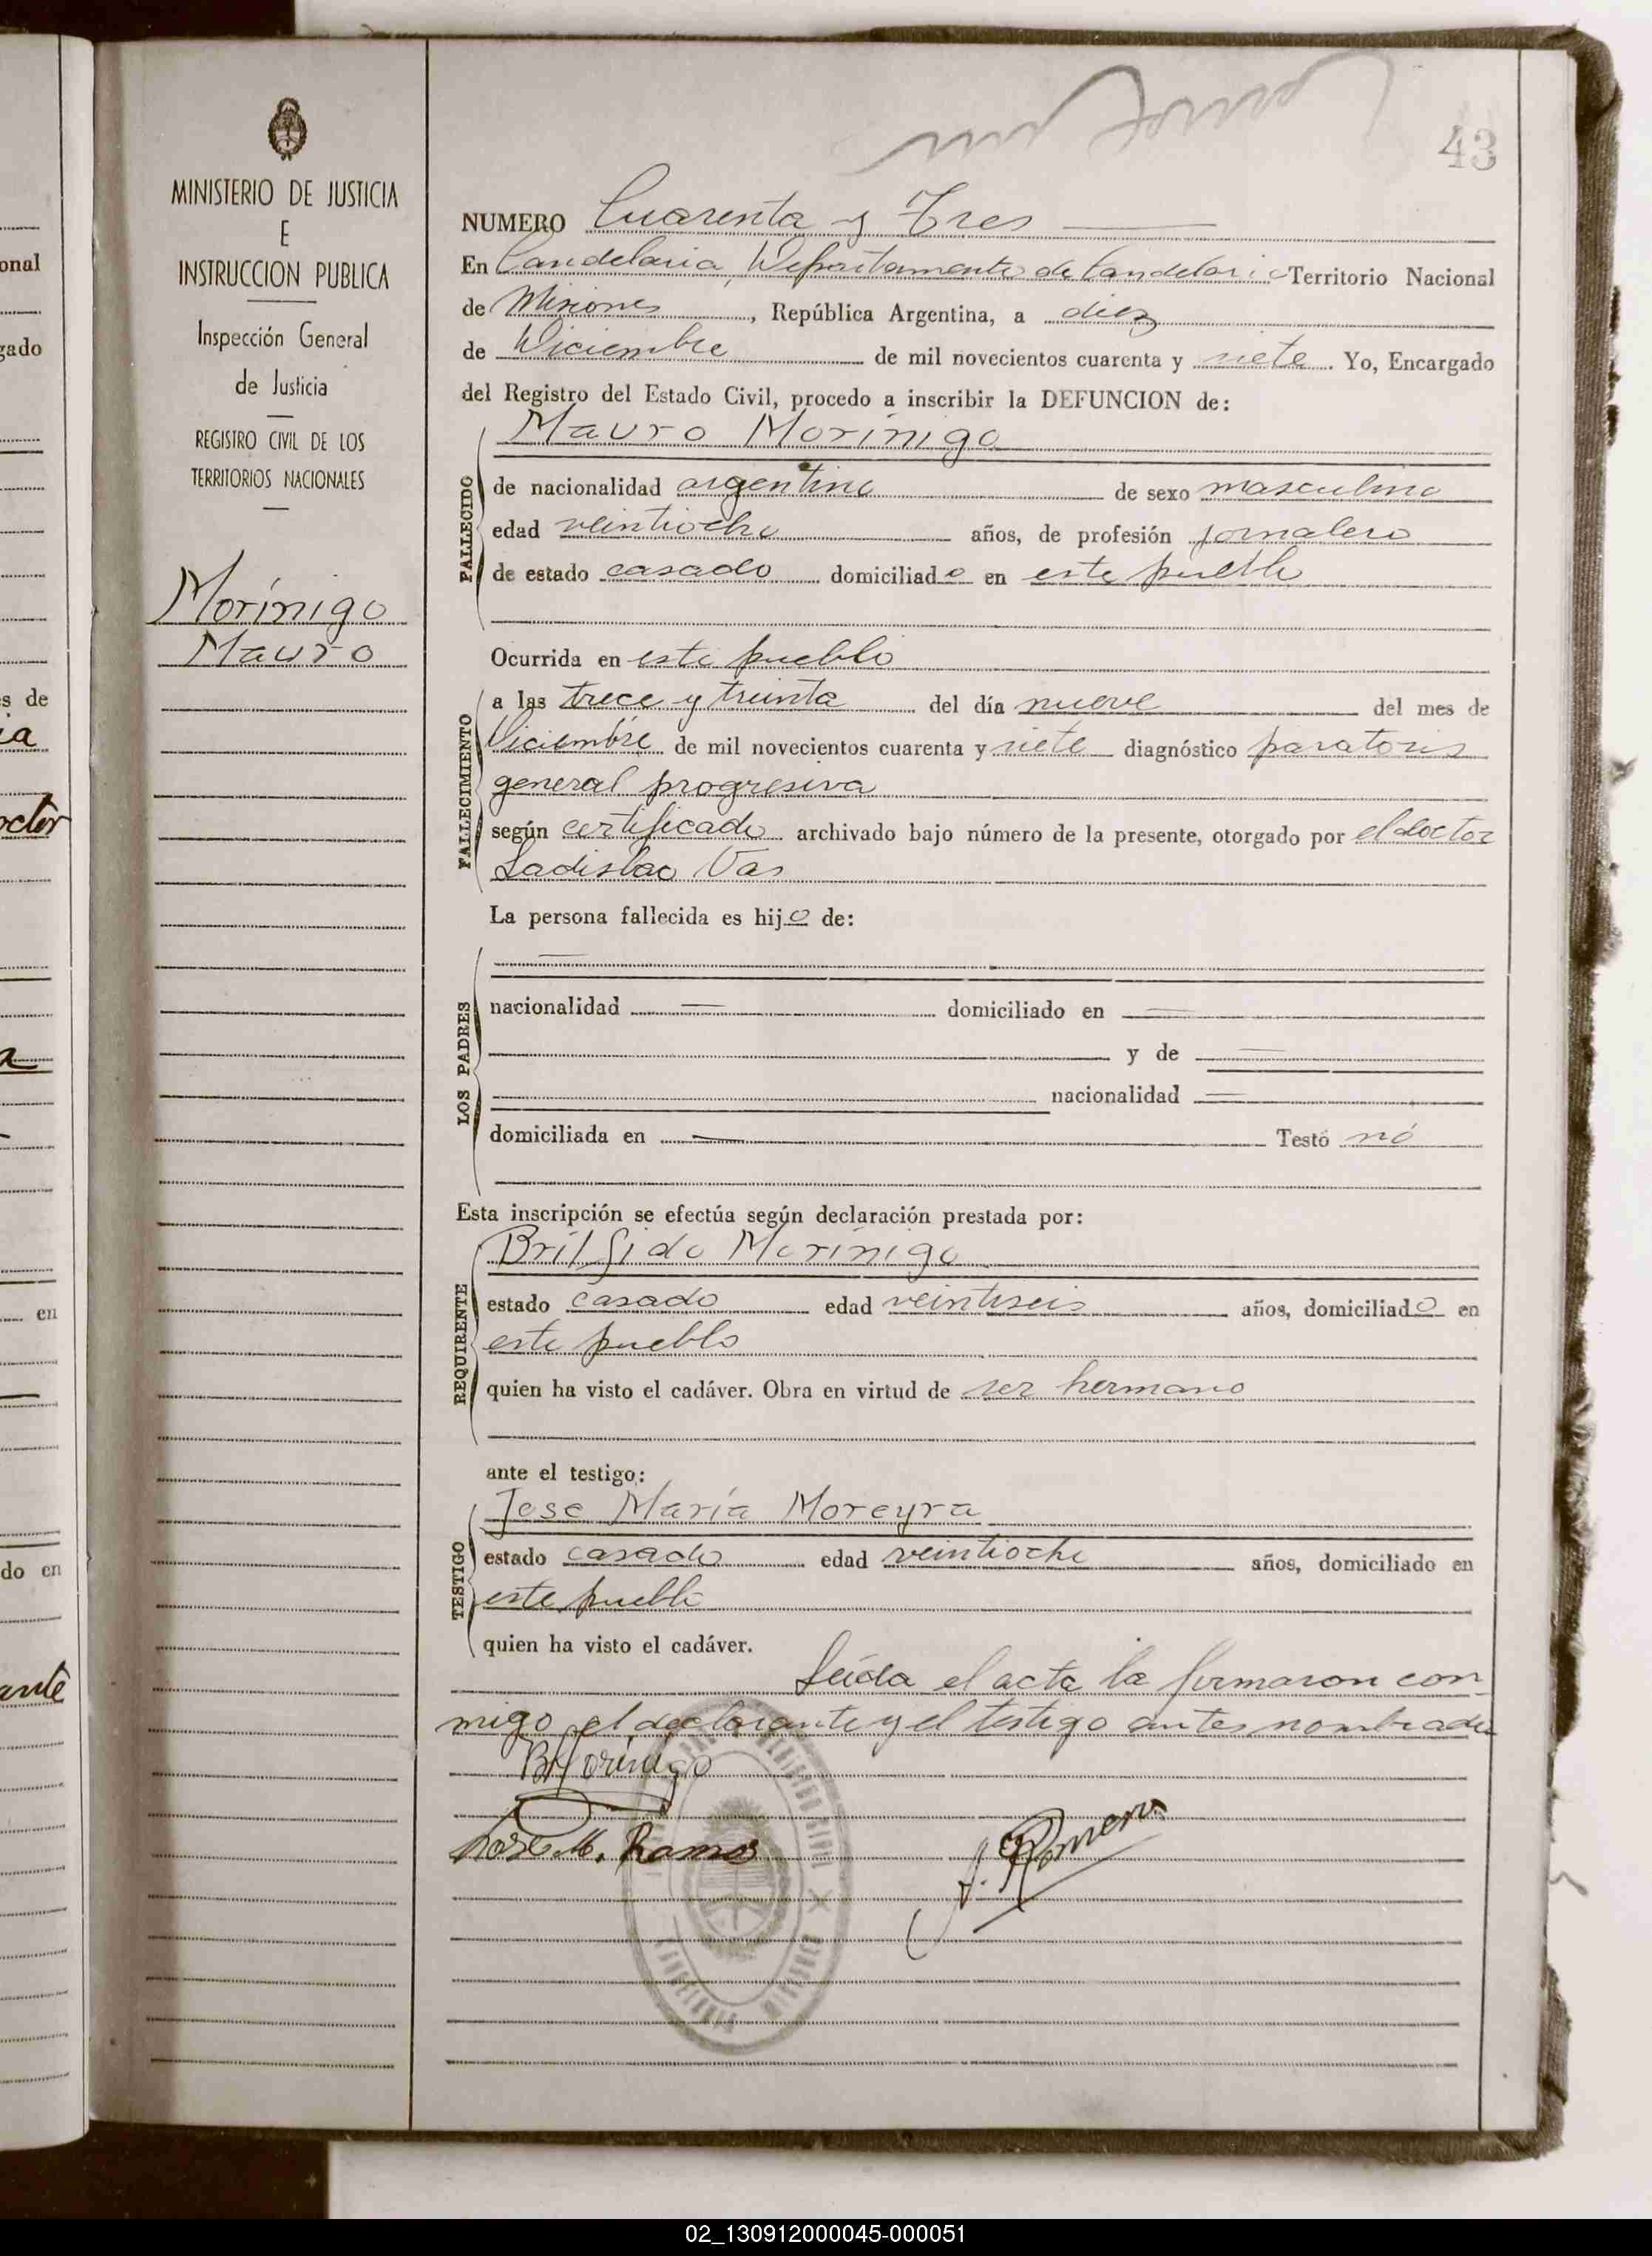 43
MINISTERIO DE JUSTICIA
E
INSTRUCCION PUBLICA
Inspección General
de Justicia
REGISTRO CIVIL DE LOS
TERRITORIOS NACIONALES
Morínigo
Mauro
NUMERO Cuarenta y Tres
En Candelaria, Departamento de Candelaria Territorio Nacional
de Misiones, República Argentina, a diez
de Diciembre de mil novecientos cuarenta y siete. Yo, Encargado
del Registro del Estado Civil, procedo a inscribir la DEFUNCION de:
Mauro Morinigo
FALLECIDO
de nacionalidad argentino de sexo masculino
edad veintiocho años, de profesión jornalero
de estado casado domiciliado en este pueblo
Ocurrida en este pueblo
FALLECIMIENTO
a las trece y treinta del día nueve del mes de
Diciembre de mil novecientos cuarenta y siete diagnóstico
general progresiva
según certificado archivado bajo número de la presente, otorgado por el doctor
Ladislao Vas
La persona fallecida es hijo de:
LOS PADRES
nacionalidad domiciliado en
y de
nacionalidad
domiciliada en Testó nó
Esta inscripción se efectúa según declaración prestada por:
Morinigo
REQUIRENTE
estado casado edad veintiseis años, domiciliado en
este pueblo
quien ha visto el cadáver. Obra en virtud de ser hermano
ante el testigo:
Jose María Moreyra
TESTIGO
estado casado edad veintiocho años, domiciliado en
este pueblo
quien ha visto el cadáver.
Leída el acta la firmaron con
migo el declarante y el testigo antes nombrados
BMorinigo
Jose M. Ramos
J. Romero
onal
gado
s de
ia
octor
en
do en
ante
02_130912000045-000051